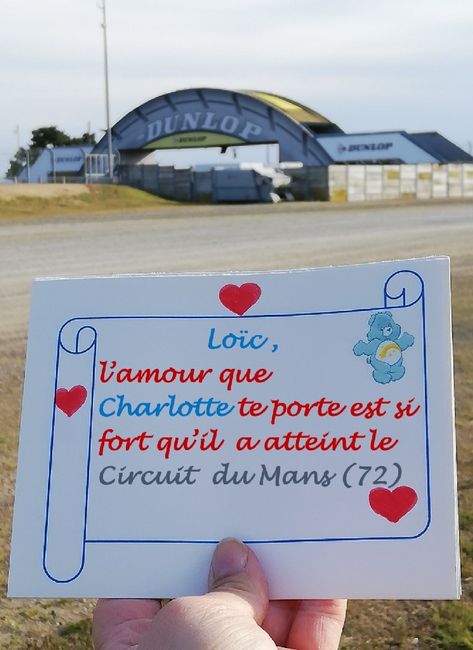 DUNLOP
DUNLOP
DUNLOP
Loïc ,
l'amour que
Charlotte te porte est si
fort qu'il a atteint le
Circuit du Mans (72)